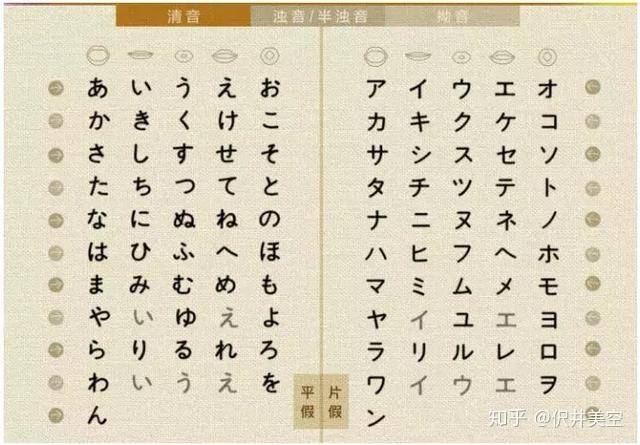 清音 浊音/半浊音 拗音
あ い う え お ア イ ウ エ オ
か き く け こ カ キ ク ケ コ
さ し す せ そ サ シ ス セ ソ
た ち つ て と タ チ ツ テ ト
な に ぬ ね の ナ ニ ヌ ネ ノ
は ひ ふ へ ほ ハ ヒ フ ヘ ホ
ま み む め も マ ミ ム メ モ
や い ゆ え よ ヤ イ ユ エ ヨ
ら り る れ ろ ラ リ ル レ ロ
わ い う え を ワ イ ウ エ ヲ
ん ン
平假 片假
知乎 @伬井美空